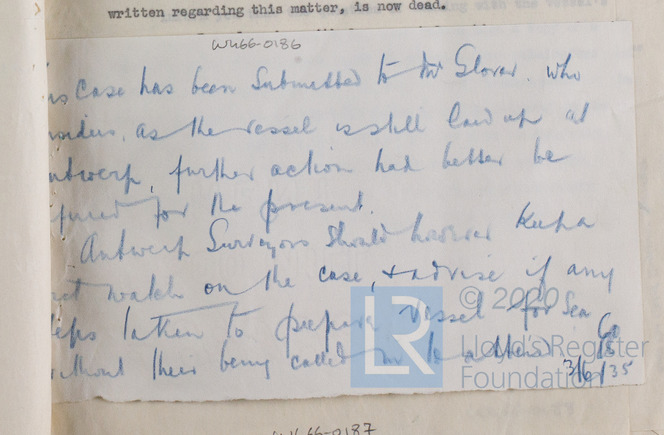 written regarding this matter, is now dead.
W466-0186
is case has been submitted to Mr Glover. who
nsiders, as the vessel is still laid up at
ntwerp, further action had better be
for the present.
Antwerp Surveyors should however keep a
watch on the case, & advise if any
teps taken to prepare vessel for sea
ithout their being called in to attend
3/6/35
LR
© 2020
Lloyd's Register
Foundation
W466-0187